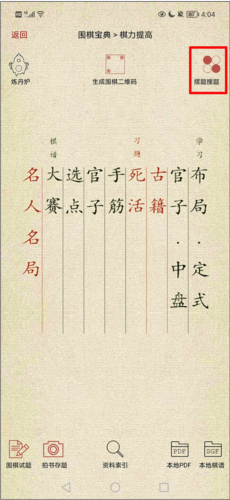 4:04
返回
围棋宝典 > 棋力提高
炼丹炉
生成围棋二维码
摆题搜题
学习
布局·定式
官子·中盘
习题
古籍
死活
手筋
官子
选点
棋谱
大赛
名人名局
围棋试题
拍书存题
资料索引
PDF
本地PDF
本地棋谱